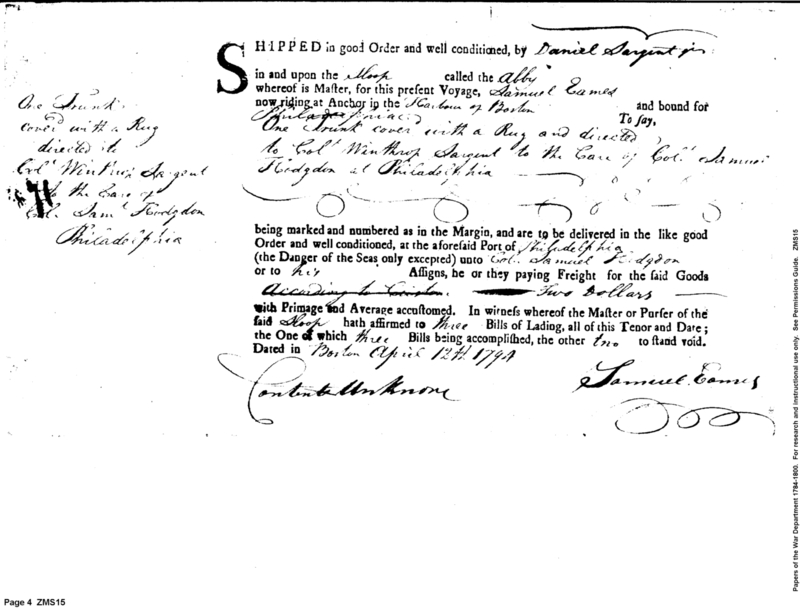 SHIPPED in good Order and well conditioned, by Daniel Sargent jr
in and upon the Sloop called the Abby
whereof is Master, for this present Voyage, Samuel Eames
now riding at Anchor in the Harbour of Boston and bound for
Philadelphia To say,
One Trunk cover with a Rug and directed
to Colº Winthrop Sargent to the Care of Colº Samuel
Hodgdon at Philadelphia
One Trunk
cover with a Rug
directed to
Colº Winthrop Sargent
to the Care of
Colº Samˡ Hodgdon
Philadelphia
being marked and numbered as in the Margin, and are to be delivered in the like good
Order and well conditioned, at the aforesaid Port of Philadelphia
(the Danger of the Seas only excepted) unto Colº Samuel Hodgdon
or to his Assigns, he or they paying Freight for the said Goods
According to Two Dollars
with Primage and Average accustomed. In witness whereof the Master or Purser of the
said Sloop hath affirmed to three Bills of Lading, all of this Tenor and Date;
the One of which three Bills being accomplished, the other two to stand void.
Dated in Boston April 12th 1794
Contents Unknown
Samuel Eames
Page 4 ZMS15
Papers of the War Department 1784-1800. For research and instructional use only. See Permissions Guide. ZMS15